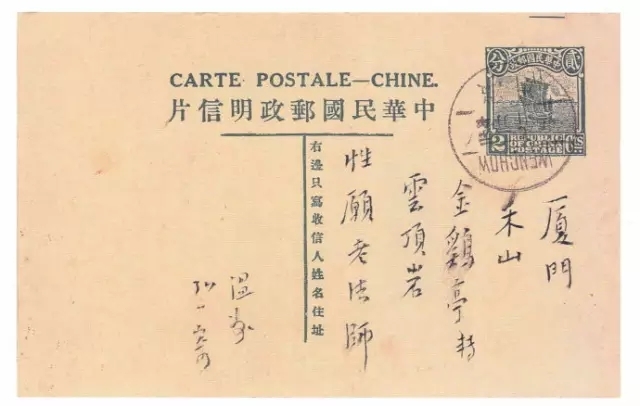 CARTE POSTALE—CHINE.
中華民國郵政明信片
中華民國郵政
貳分
2 REPUBLIC OF CHINA POSTAGE CTS
WENCHOW
廈門
禾山
金鷄亭轉
雲頂岩
性願老法師
右邊只寫收信人姓名住址
溫州
弘一